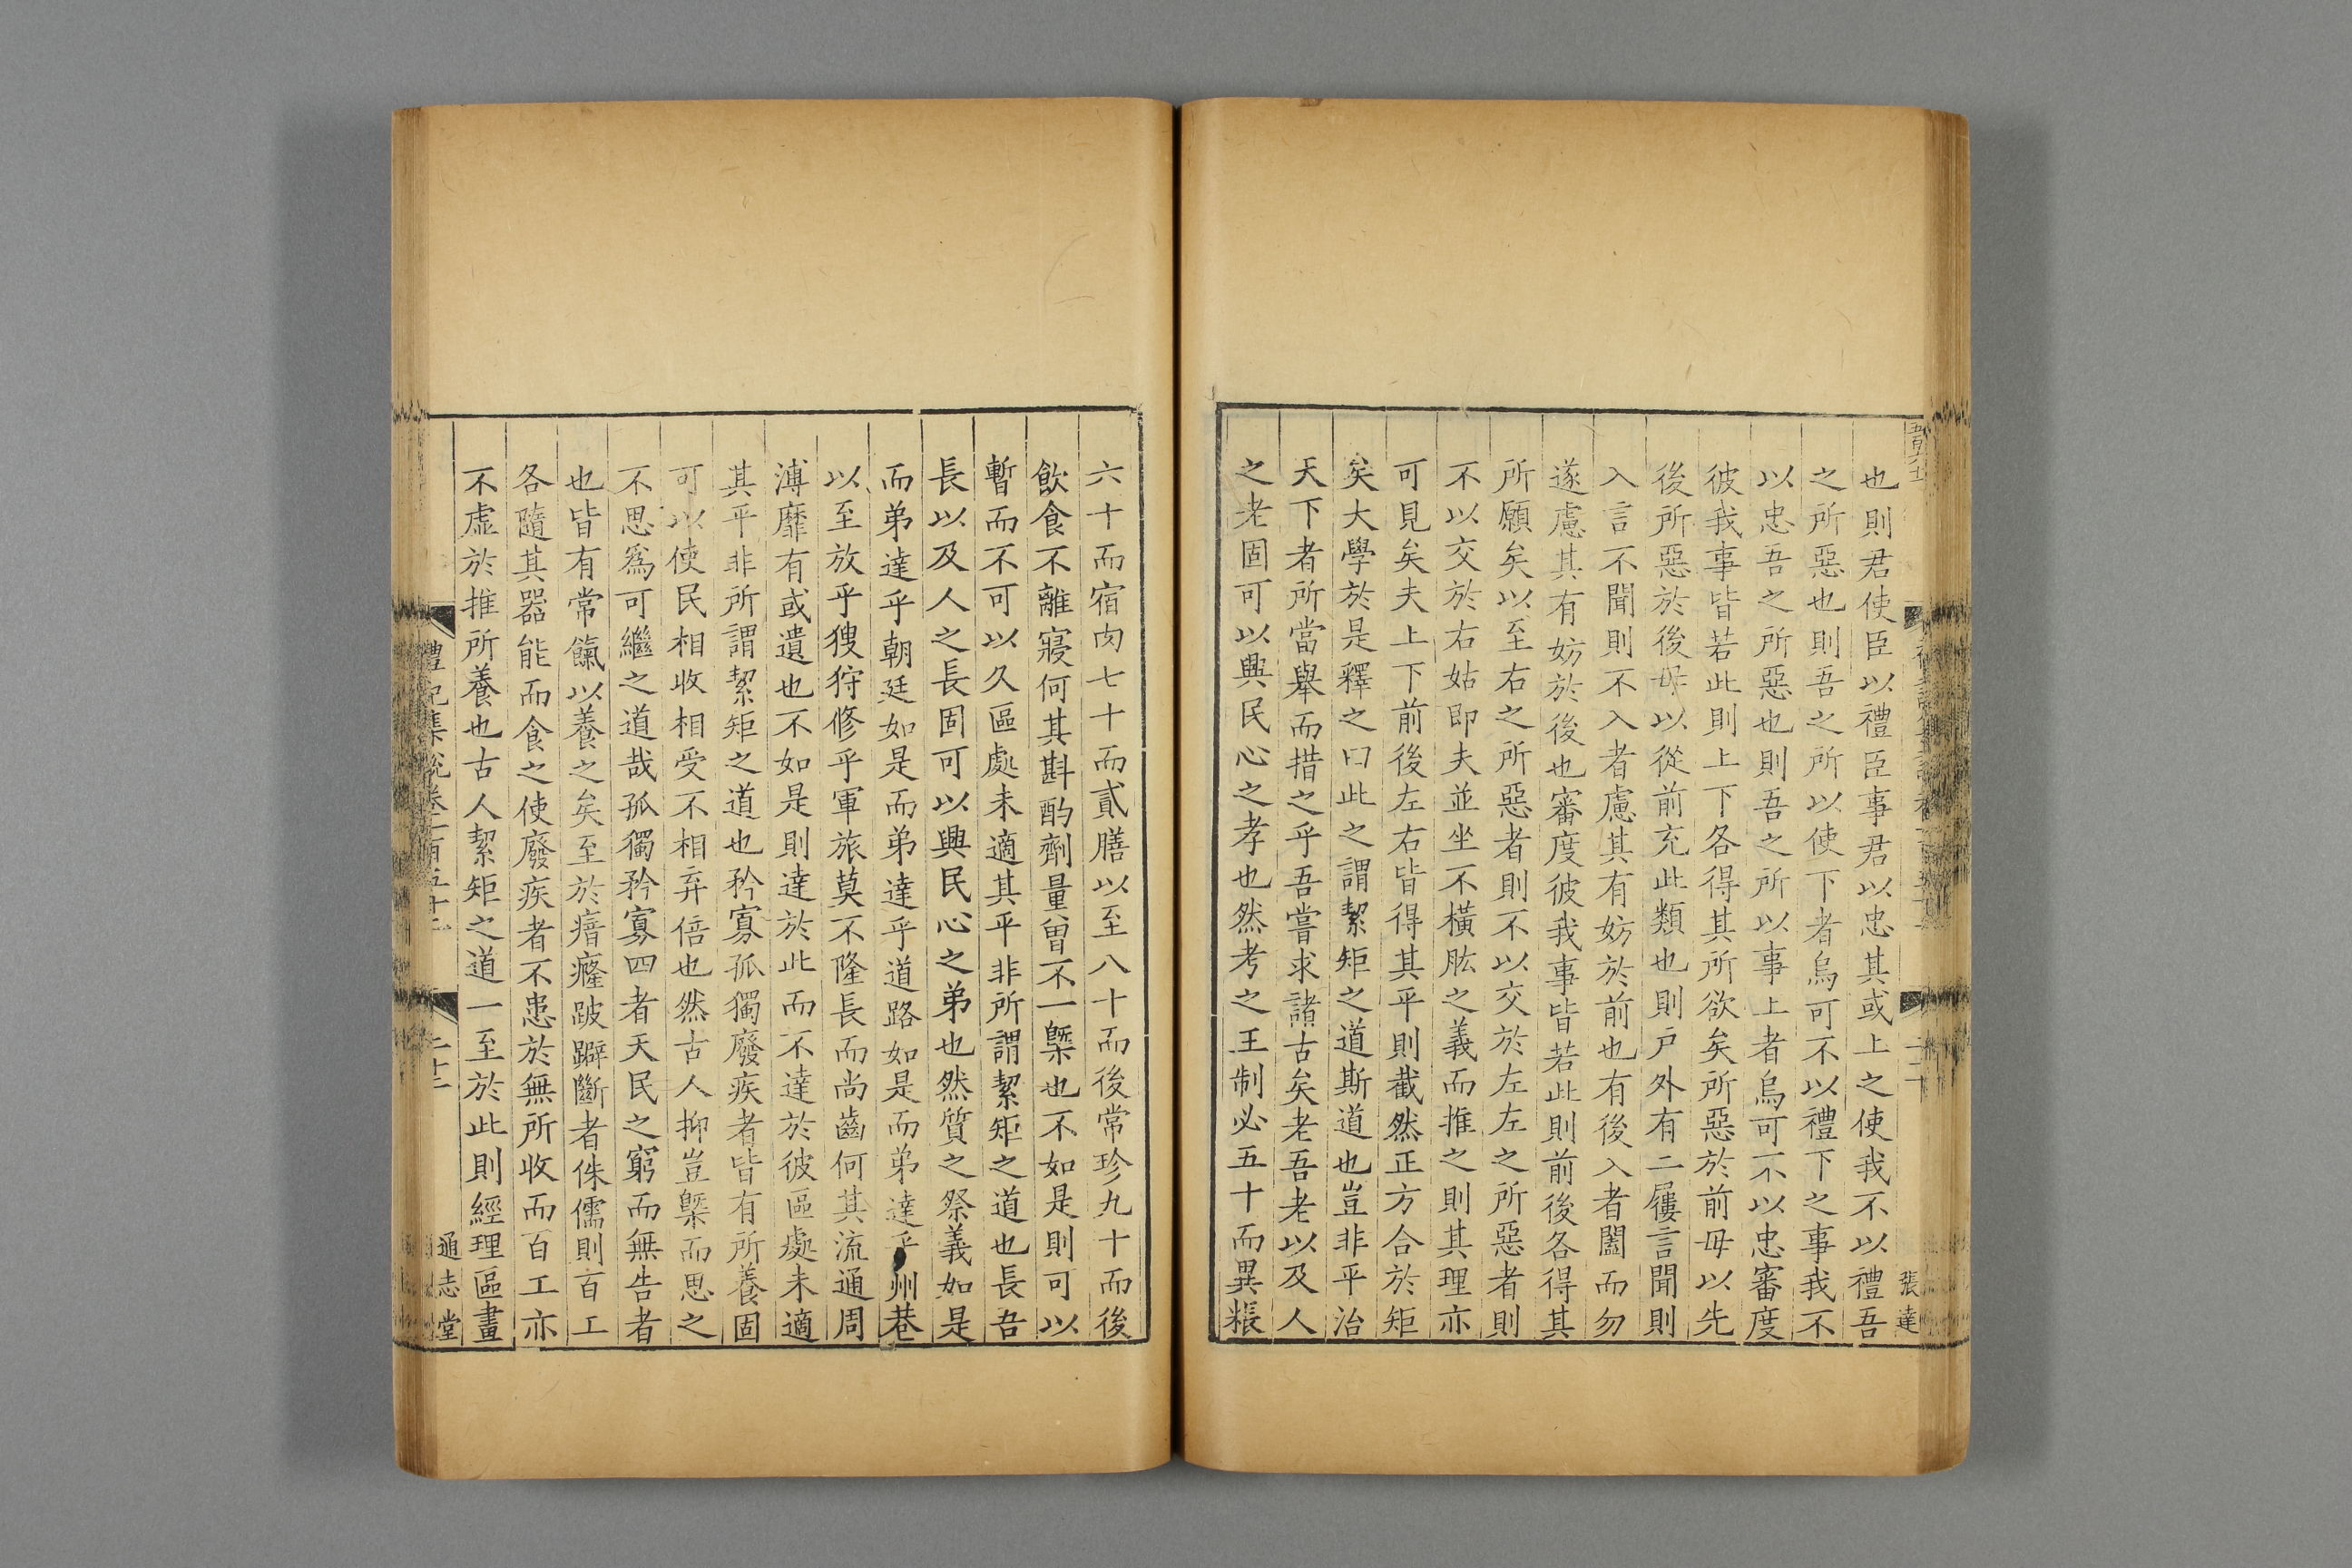 也則君使臣以禮臣事君以忠其或上之使我不以禮吾
之所惡也則吾之所以使下者烏可不以禮下之事我不
以忠吾之所惡也則吾之所以事上者烏可不以忠審度
彼我事皆若此則上下各得其所欲矣所惡於前毋以先
後所惡於後毋以從前充此類也則戶外有二屨言聞則
入言不聞則不入者慮其有妨於前也有後入者闔而勿
遂慮其有妨於後也審度彼我事皆若此則前後各得其
所願矣以至右之所惡者則不以交於左左之所惡者則
不以交於右姑即夫並坐不橫肱之義而推之則其理亦
可見矣夫上下前後左右皆得其平則截然正方合於矩
矣大學於是釋之曰此之謂絜矩之道斯道也豈非平治
天下者所當舉而措之乎吾嘗求諸古矣老吾老以及人
之老固可以興民心之孝也然考之王制必五十而異粻
張達
六十而宿肉七十而貳膳以至八十而後常珍九十而後
飲食不離寢何其斟酌劑量曾不一槩也不如是則可以
暫而不可以久區處未適其平非所謂絜矩之道也長吾
長以及人之長固可以興民心之弟也然質之祭義如是
而弟達乎朝廷如是而弟達乎道路如是而弟達乎州巷
以至放乎獀狩修乎軍旅莫不隆長而尚齒何其流通周
溥靡有或遺也不如是則達於此而不達於彼區處未適
其平非所謂絜矩之道也矜寡孤獨廢疾者皆有所養固
可以使民相收相受不相弃倍也然古人抑豈槩而思之
不思爲可繼之道哉孤獨矜寡四者天民之窮而無告者
也皆有常餼以養之矣至於瘖癃跛躃斷者侏儒則百工
各隨其器能而食之使廢疾者不患於無所收而百工亦
不虛於推所養也古人絜矩之道一至於此則經理區畫
禮記集說卷一百五十二 二十二 通志堂